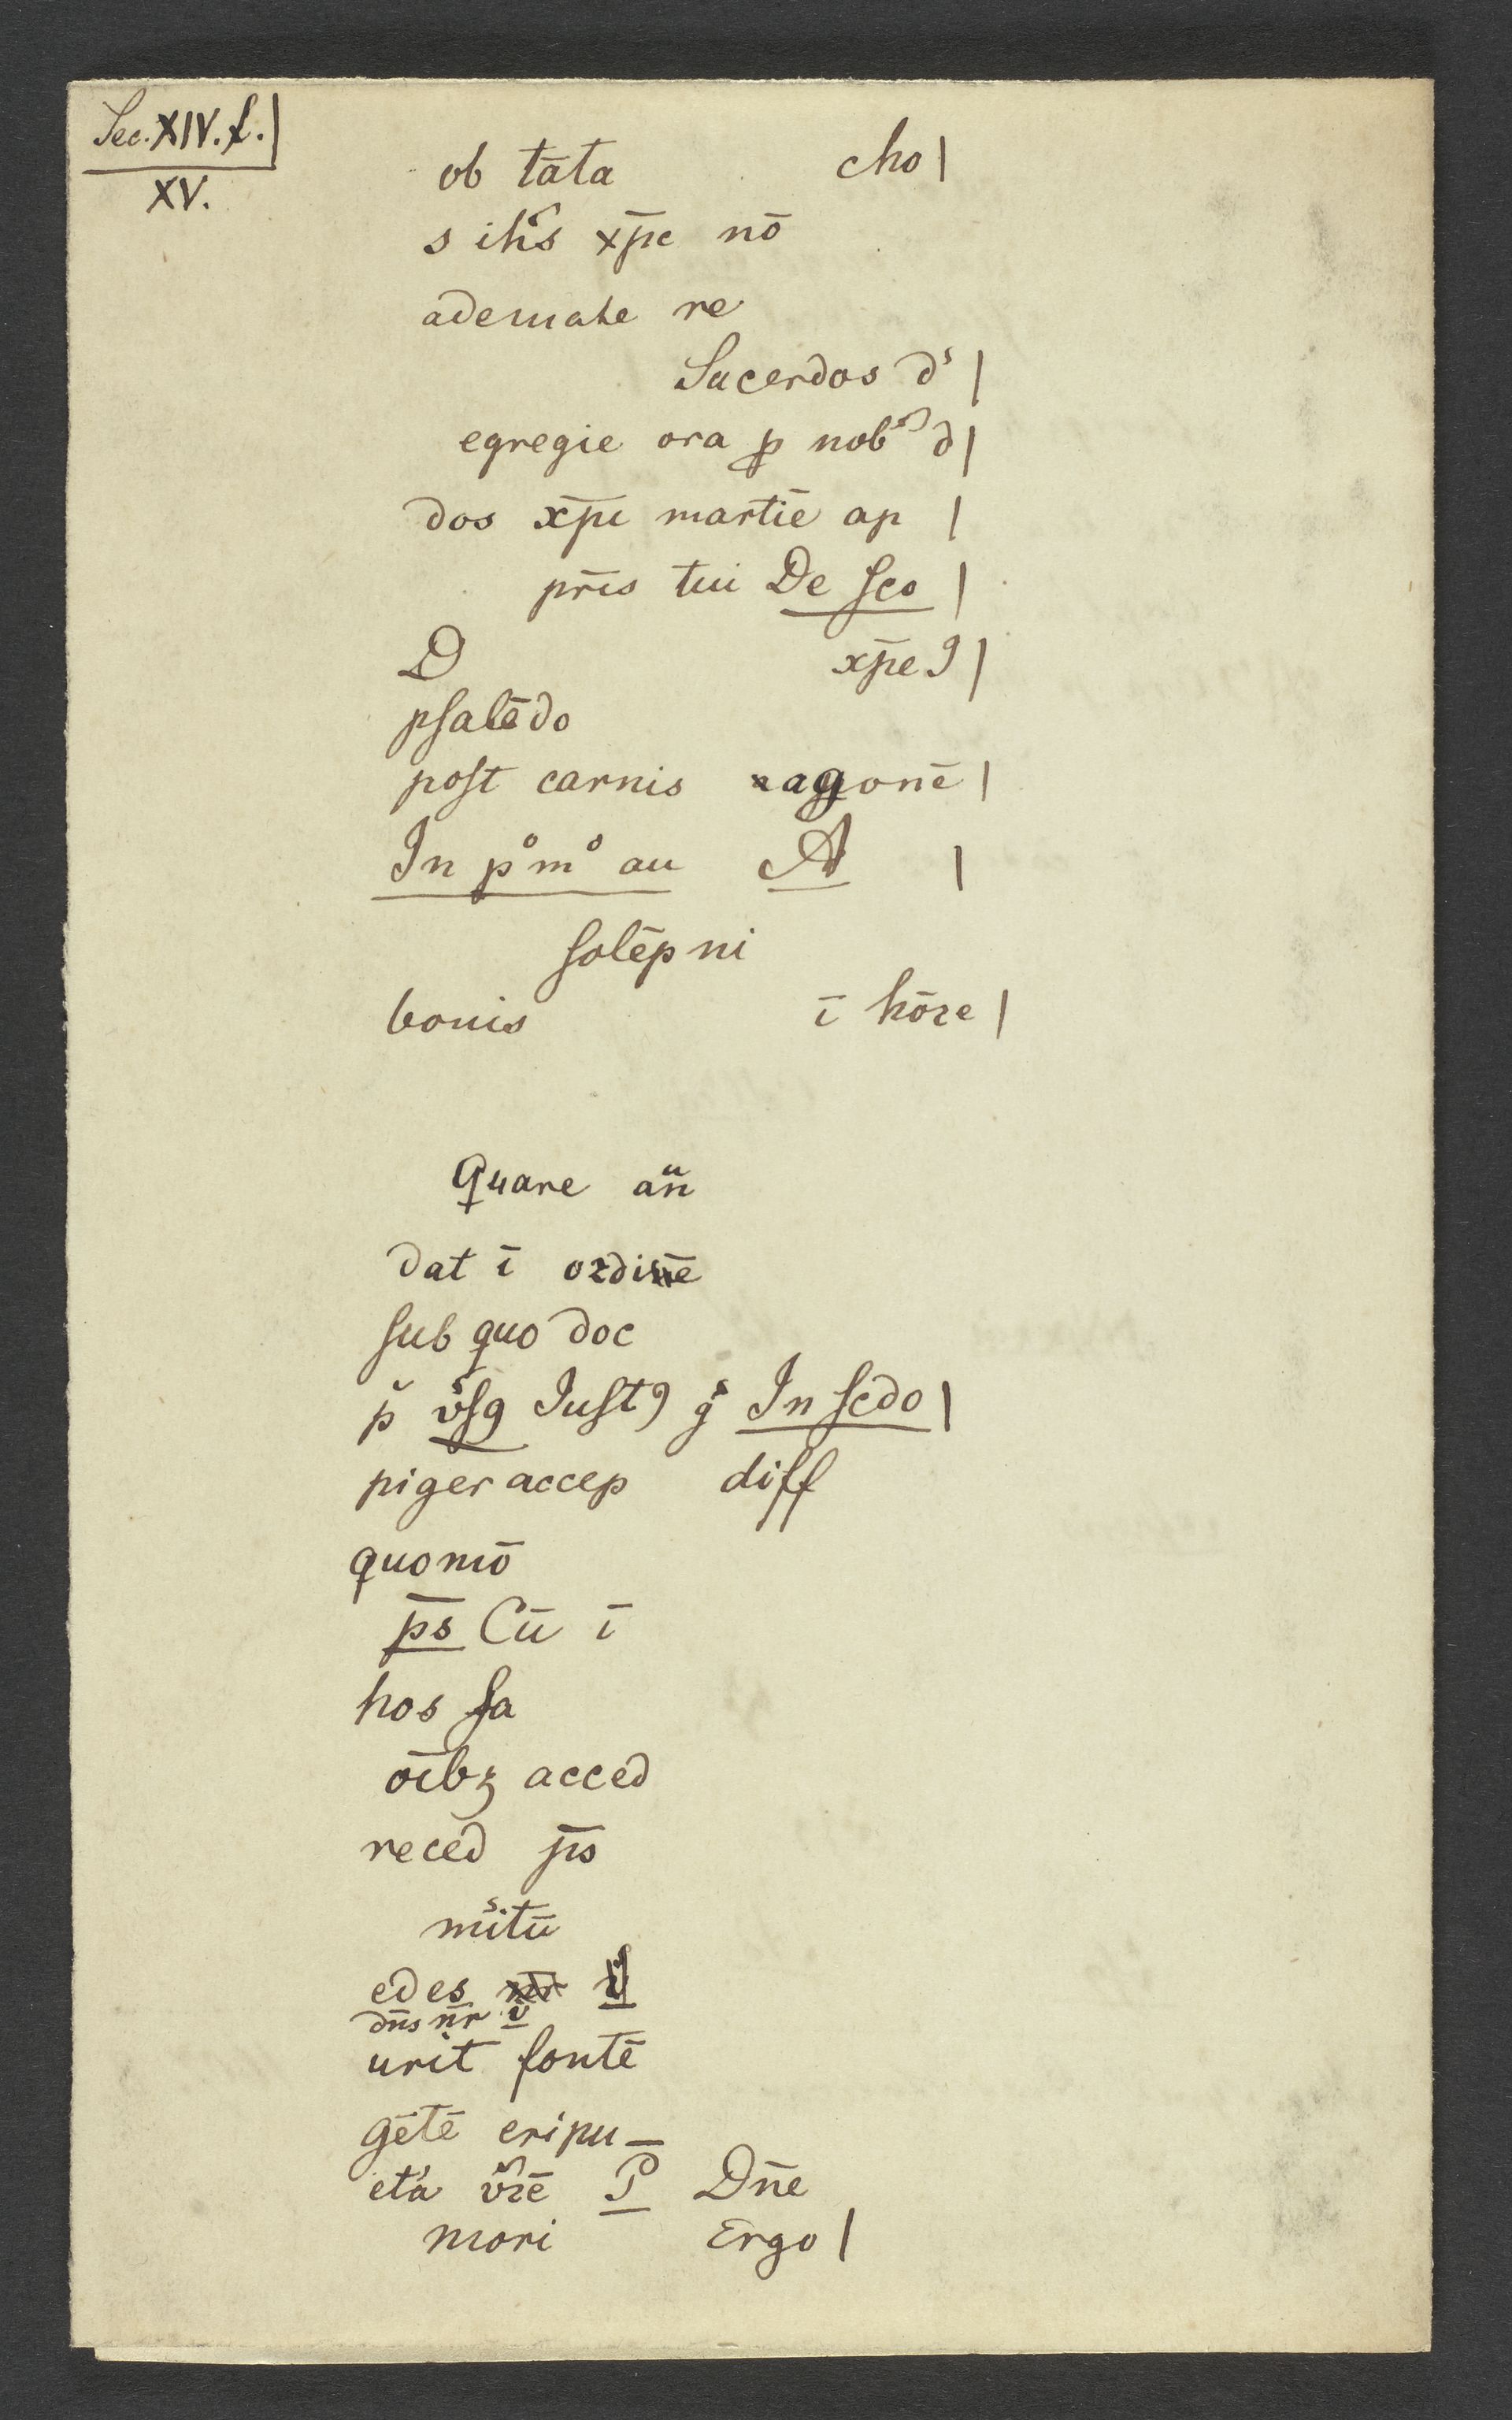 Sec. XIV. f. |
XV.
ob tāta cho |
s ihs xp̄c nō
ademate re
Sacerdos ds |
egregie ora ꝓ nob d |
dos xp̄i martiē ap |
pr̄is tui De ſco |
D xp̄e 9 |
pſalēdo
poſt carnis agonē |
In pºmº au A |
ſolēpni
bonis ī hōꝛe |
Quare an
dat ī oꝛdinē
ſub quo doc
p vſ9 Iuſt9 g In ſcdo |
piger accep diff
quomō
p̄s Cū ī
hos ſa
oībꝫ acced
reced p̄s
mitū
edes
dn̄s nr̄ v
urit fontē
gētē eripu_
eta vꝛē P Dn̄e
mori Ergo |